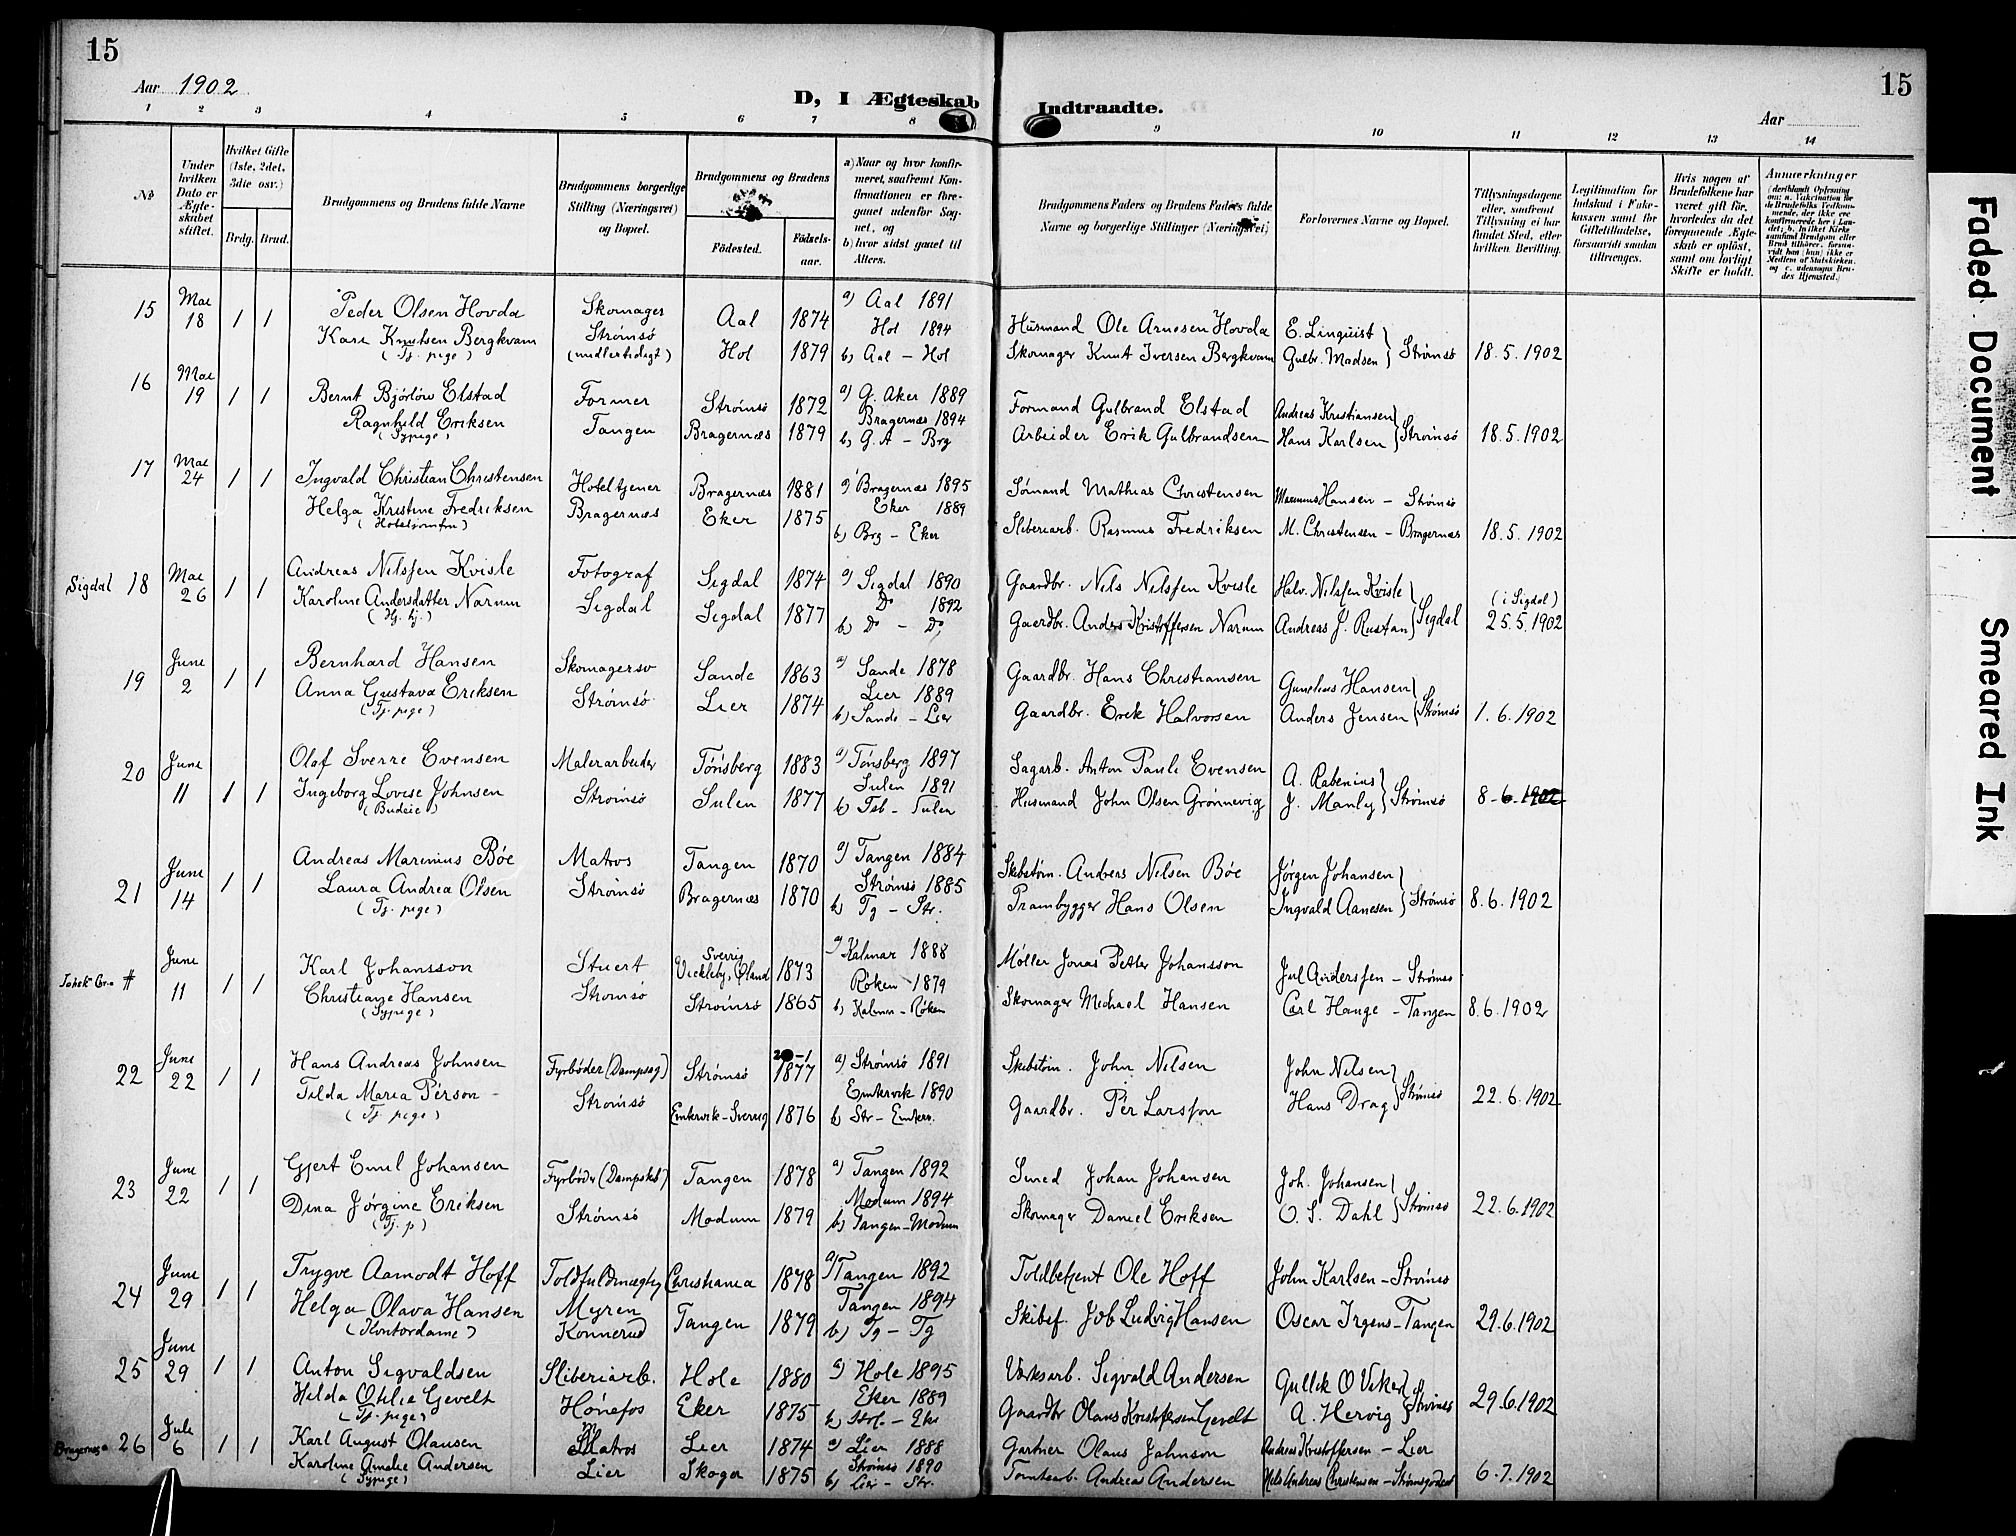 15
15
Aar 1902
D, I Ægteskab Indtraadte.
Aar
1 2 3 4 5 6 7 8 9 10 11 12 13 14
No
Under hvilken Dato er Ægteskabet stiftet.
Hvilket Gifte (1ste, 2det, 3die osv.)
Brdg. Brud.
Brudgommens og Brudens fulde Navne
Brudgommens borgerlige Stilling (Næringsvei) og Bopæl.
Brudgommens og Brudens
Fødested. Fødselsaar.
a) Naar og hvor konfirmeret, saafremt Konfirmationen er foregaaet udenfor Sognet, og
b) hvor sidst gaaet til Alters.
Brudgommens Faders og Brudens Faders fulde Navne og borgerlige Stillinger (Næringsvei)
Forlovernes Navne og Bopæl.
Tillysningsdagene eller, saafremt Tillysning ei har fundet Sted, efter hvilken Bevilling.
Legitimation for Indskud i Enkekassen samt for Giftetilladelse, forsaavidt saadan tiltrænges.
Hvis nogen af Brudefolkene har været gift før, hvorledes da det foregaaende Ægteskab er opløst, samt om lovligt Skifte er holdt.
Anmærkninger
15 Mai 18 1 1 Peder Olsen Hovda Skomager Aal 1874 a) Aal 1891 Husmand Ole Arnesen Hovda E. Linquist
Kari Knutsen Bergkvam Strømsø Hol 1879 Hol 1894 Skomager Knut Iversen Bergkvam Gulbr. Madsen Strømsø 18.5.1902
(Tj. pige) (midlertidigt) b) Aal - Hol
16 Mai 19 1 1 Bernt Bjørløw Elstad Former Strømsø 1872 a) G. Aker 1889 Formand Gulbrand Elstad Andreas Kristiansen
Ragnhild Eriksen Tangen Bragernæs 1879 Bragernæs 1894 Arbeider Erik Gulbrandsen Hans Karlsen Strømsø 18.5.1902
(Sypige) b) G.A - Brg
17 Mai 24 1 1 Ingvald Christian Christensen Hoteltjener Bragernæs 1881 a) Bragernæs 1895 Sømand Mathias Christensen Hansen - Strømsø
Helga Kristine Fredriksen Bragernæs Eker 1875 Eker 1889 Sliberiarb. Rasmus Fredriksen M. Christensen - Bragernæs 18.5.1902
b) Brg - Eker
Sigdal 18 Mai 26 1 1 Andreas Nilssen Kvisle Fotograf Sigdal 1874 a) Sigdal 1890 Gaardbr. Nils Nilssen Kvisle Halv. Nilssen Kvisle (i Sigdal)
Karoline Andersdatter Narum Sigdal Sigdal 1877 Do 1892 Gaardbr. Anders Kristoffersen Narum Andreas J. Rustan Sigdal 25.5.1902
b) Do - Do
19 June 2 1 1 Bernhard Hansen Skomagersv Sande 1863 a) Sande 1878 Gaardbr. Hans Christiansen Gunelius Hansen
Anna Gustava Eriksen Strømsø Lier 1874 Lier 1889 Gaardbr. Erik Halvorsen Anders Jensen Strømsø 1.6.1902
(Tj. pige) b) Sande - Lier
20 June 11 1 1 Olaf Sverre Evensen Malerarbeider Tønsberg 1883 a) Tønsberg 1897 Sagarb. Anton Pauli Evensen A. Rabenius
Ingeborg Lovise Johnsen Strømsø Sulen 1877 Sulen 1891 Husmand John Olsen Grønnevig J. Manly Strømsø 8-6.1902
(Budeie) b) Tsb - Sulen
21 June 14 1 1 Andreas Marinius Bøe Matros Tangen 1870 a) Tangen 1884 Skibstøm. Anders Nilsen Bøe Jørgen Johansen
Laura Andrea Olsen Strømsø Bragernæs 1870 Strømsø 1885 Prambygger Hans Olsen Ingvald Aanesen Strømsø 8.6.1902
(Tj. pige) b) Tg - Str.
# June 11 1 1 Karl Johansson Stuert Sverrig Vickleby, Øland 1873 a) Kalmar 1888 Møller Jonas Petter Johansson Jul Anderssen - Strømsø
Christiane Hansen Strømsø Strømsø 1865 Røken 1879 Skomager Michael Hansen Carl Hauge - Tangen 8.6.1902
(Sypige) b) Kalmar - Røken
22 June 22 1 1 Hans Andreas Johnsen Fyrbøder (Dampsag) Strømsø 1877 a) Strømsø 1891 Skibstøm. John Nilsen John Nilsen
Tilda Maria Pèrson Strømsø Emtervik - Sverrig 1876 Emtervik 1890 Gaardbr. Pèr Larsson Hans Drag Strømsø 22.6.1902
(Tj. pige) b) Str - Emterv.
23 June 22 1 1 Gjert Emil Johansen Fyrbøder (Dampskb) Tangen 1878 a) Tangen 1892 Smed Johan Johansen Joh. Johansen
Dina Jørgine Eriksen Strømsø Modum 1879 Modum 1894 Skomager Daniel Eriksen O. S. Dahl Strømsø 22.6.1902
(Tj. p) b) Tangen - Modum
24 June 29 1 1 Trygve Aamodt Hoff Toldfuldmægtig Christiania 1878 a) Tangen 1892 Toldbetjent Ole Hoff John Karlsen - Strømsø
Helga Olava Hansen Myren Tangen 1879 Tangen 1894 Skibsf. Job Ludvig Hansen Oscar Irgens - Tangen 29.6.1902
(Kontordame) Konnerud b) Tg - Tg
25 June 29 1 1 Anton Sigvaldsen Sliberiarb. Hole 1880 a) Hole 1895 Værksarb. Sigvald Andersen Gullik O Viker
Hilda Othilie Gevelt Hønefos Eker 1875 Eker 1889 Gaardbr Olaus Kristoffersen Gevelt A. Hervig Strømsø 29.6.1902
(Tj. pige)
Bragernæs 26 Juli 6 1 1 Karl August Olausen Matros Lier 1874 a) Lier 1888 Gartner Olaus Johnson Andreas Kristoffersen - Lier
Karoline Amalie Andersen Lier Skoger 1875 Strømsø 1890 Tomtearb. Andreas Andersen Nils Andreas Christensen - Strømsgodset 6.7.1902
(Sypige) b) Lier - Str.
Faded Document
Smeared Ink